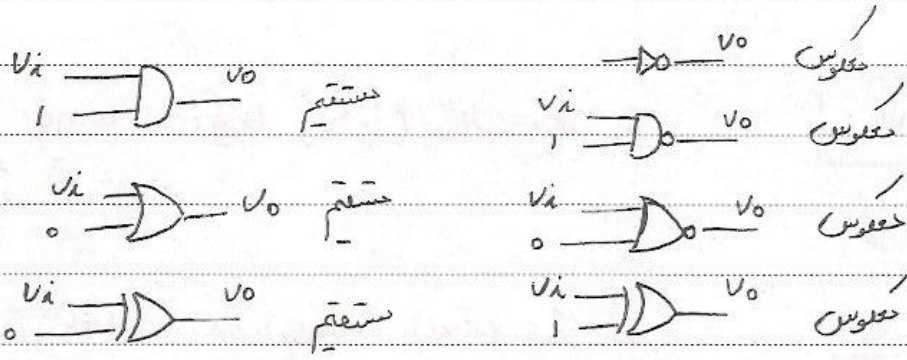 Vi 1 Vo مستقیم
Vo معکوس
Vi 1 Vo معکوس
Vi 0 Vo مستقیم
Vi 0 Vo معکوس
Vi 0 Vo مستقیم
Vi 1 Vo معکوس